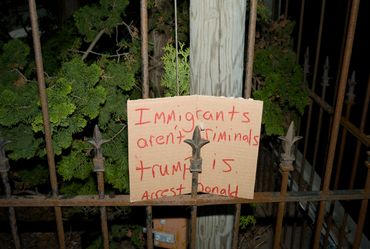 Immigrants
aren't criminals
trump is.
Arrest Donald